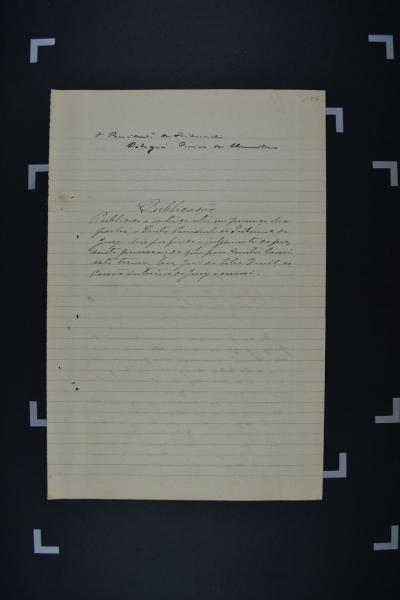 O Presidente do Tribunal
Correia de
Publicação
Publicada a sentença retro em presença das
partes, o Doutor Presidente do Tribunal do
Jury deu por findo o julgamento do pre
sente processo; do que para constar lavrei
este termo. Eu, José da Silva
escrivão interino do Jury o escrevi.